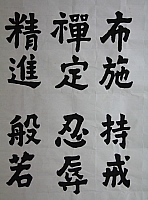 布施持戒
禪定忍辱
精進般若